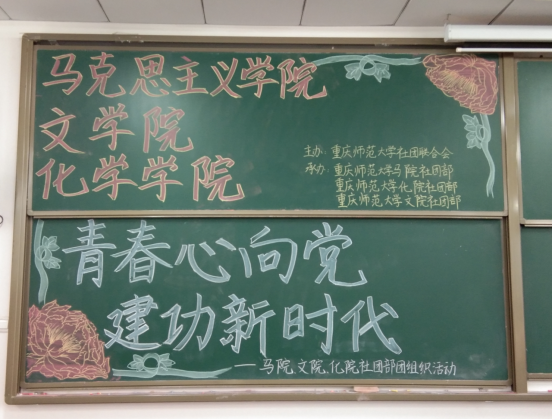 马克思主义学院
文学院
化学学院
主办:重庆师范大学社团联合会
承办:重庆师范大学马院社团部
重庆师范大学化院社团部
重庆师范大学文院社团部
青春心向党
建功新时代
——马院、文院、化院社团部团组织活动